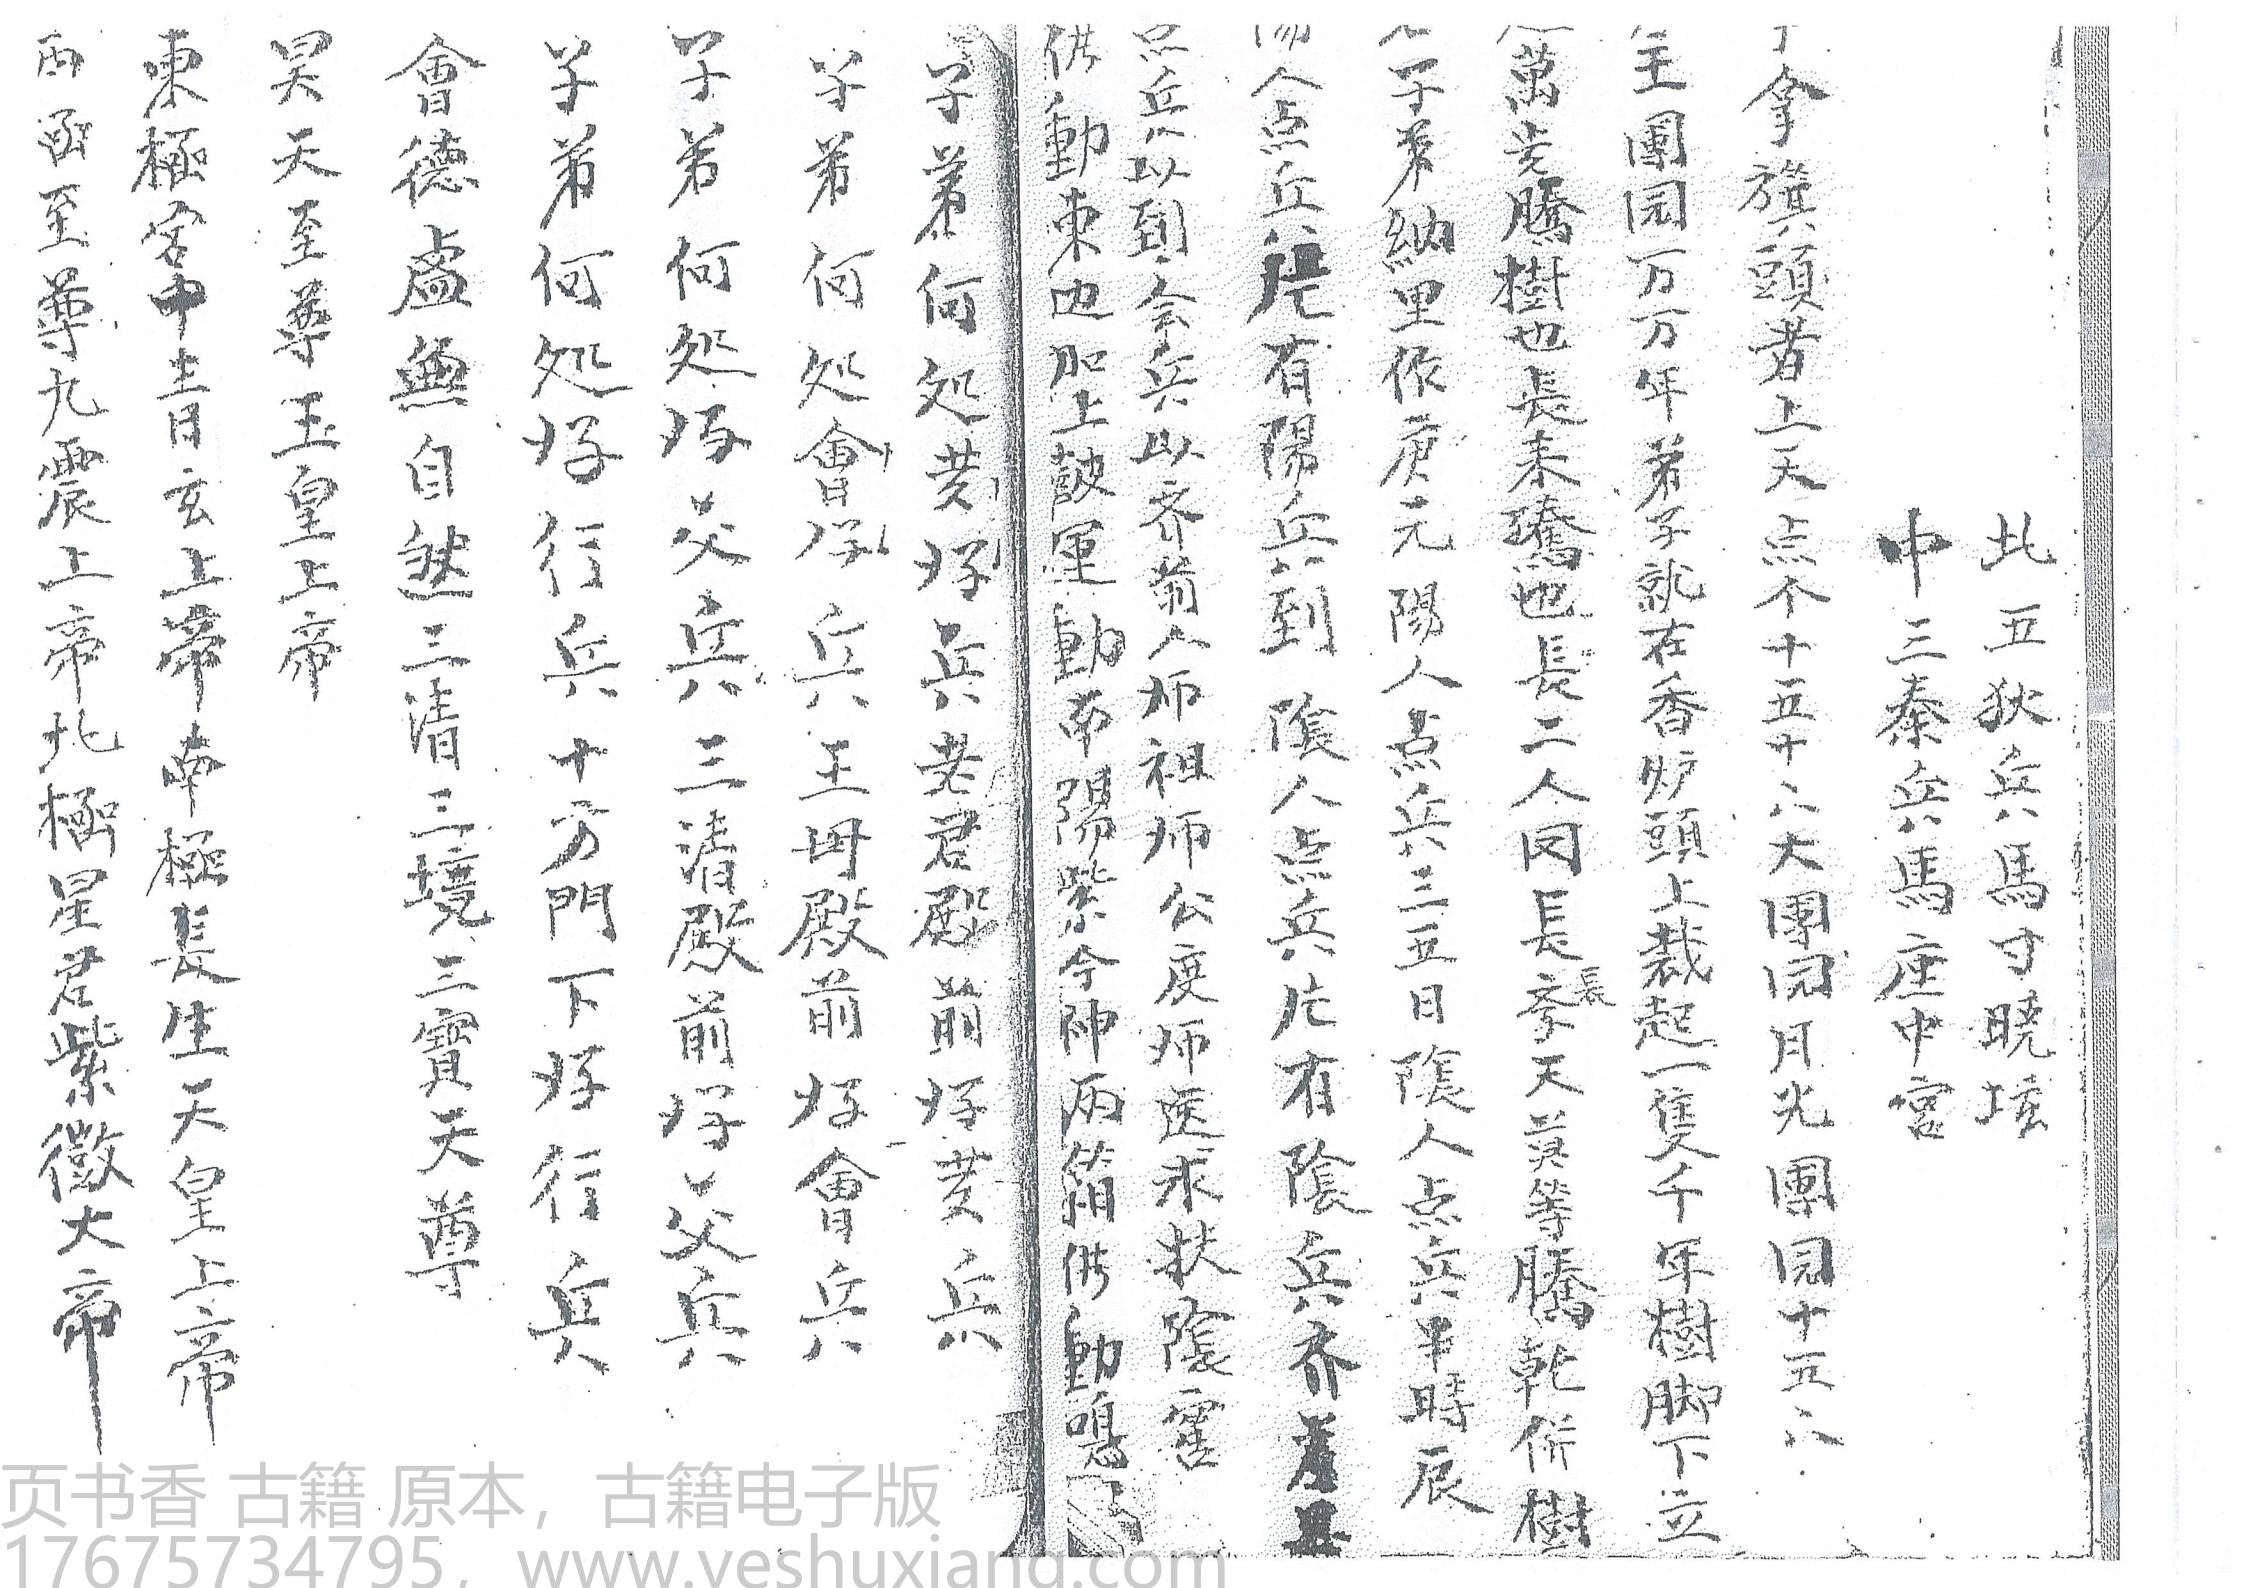 北五狄兵馬寸曉壇
中三秦兵馬座中宮
拿旗頭者上天点个十五十六大團园月光團园十五六
主團园万万年弟子就在香炉頭上裁起一隻千年樹脚下立
萬步騰樹也長来騰也長二人同長齊長天莫等騰乾併樹
子弟納里依庚元陽人点兵三五日陰人点兵半時辰
陽人点兵有陽兵到陰人点兵片有陰兵齐
点兵以到会兵以齐翁人师祖师公度师医求扶陰
供動東边加上皷運動南陽紫今神两箱供動鳴
子弟何処发好兵老君殿前好发兵
子弟何処會好兵王母殿前好會兵
子弟何処好父兵三清殿前好父兵
子弟何処好行兵十方門下好行兵
會德虚無自然三清三境三寶天尊
昊天至尊玉皇上帝
東極宮中青玄上帝南極長生天皇上帝
至尊九震上帝北極星君紫微大帝
页书香 古籍 原本，古籍电子版
17675734795，www.yeshuxiang.com